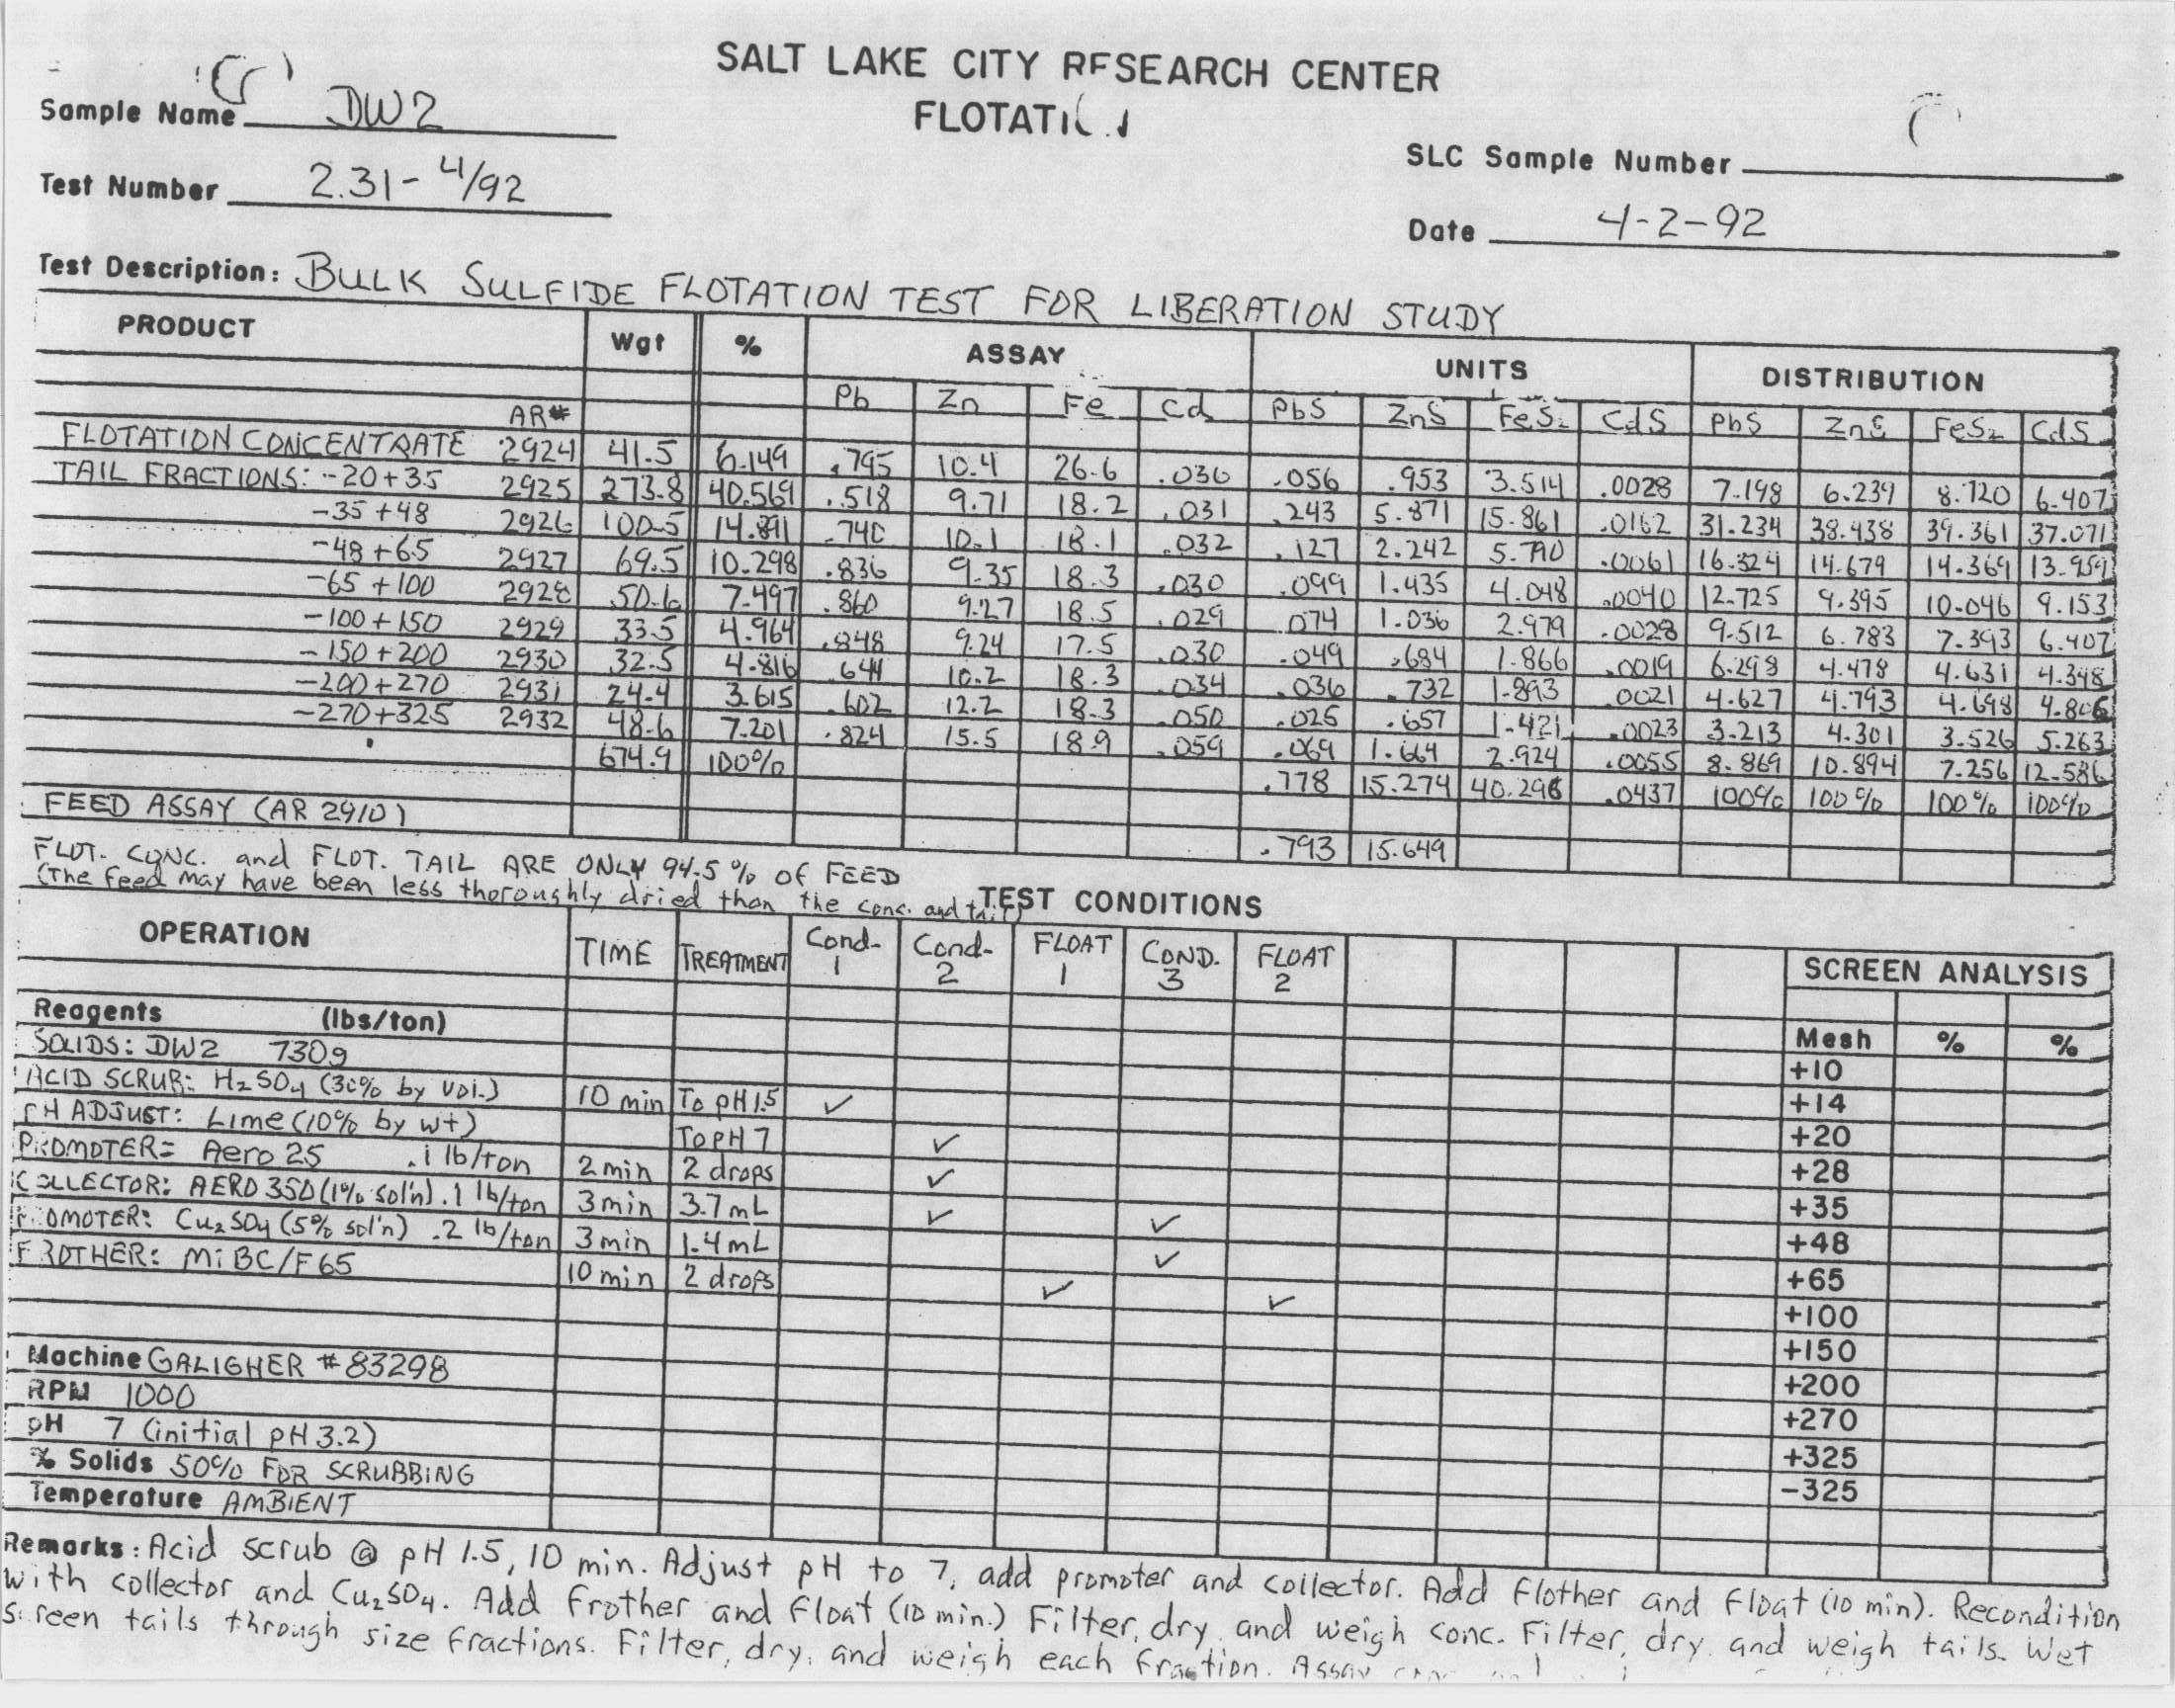 SALT LAKE CITY RESEARCH CENTER
FLOTATI
Sample Name DW2
SLC Sample Number
Test Number 2.31-4/92
Date 4-2-92
Test Description: BULK SULFIDE FLOTATION TEST FOR LIBERATION STUDY
PRODUCT Wgt % ASSAY UNITS DISTRIBUTION
Pb Zn Fe Cd PbS ZnS FeS₂ CdS PbS ZnS FeS₂ CdS
AR#
FLOTATION CONCENTRATE 2924 41.5 6.149 .795 10.4 26.6 .036 .056 .953 3.514 .0028 7.198 6.239 8.720 6.407
TAIL FRACTIONS: -20+35 2925 273.8 40.569 .518 9.71 18.2 .031 .243 5.871 15.861 .0162 31.234 38.438 39.361 37.071
-35+48 2926 100.5 14.891 .740 10.1 18.1 .032 .127 2.242 5.790 .0061 16.324 14.679 14.369 13.959
-48+65 2927 69.5 10.298 .836 9.35 18.3 .030 .099 1.435 4.048 .0040 12.725 9.395 10.046 9.153
-65+100 2928 50.6 7.497 .860 9.27 18.5 .029 .074 1.036 2.979 .0028 9.512 6.783 7.393 6.407
-100+150 2929 33.5 4.964 .848 9.24 17.5 .030 .049 .684 1.866 .0019 6.298 4.478 4.631 4.348
-150+200 2930 32.5 4.816 .644 10.2 18.3 .034 .036 .732 1.893 .0021 4.627 4.793 4.698 4.806
-200+270 2931 24.4 3.615 .602 12.2 18.3 .050 .025 .657 1.421 .0023 3.213 4.301 3.526 5.263
-270+325 2932 48.6 7.201 .824 15.5 18.9 .059 .069 1.664 2.924 .0055 8.869 10.894 7.256 12.586
674.9 100% .778 15.274 40.296 .0437 100% 100% 100% 100%
FEED ASSAY (AR 2910) .793 15.649
FLOT. CONC. and FLOT. TAIL ARE ONLY 94.5% of FEED
(The feed may have been less thoroughly dried than the conc. and tail)
TEST CONDITIONS
OPERATION TIME TREATMENT Cond. 1 Cond. 2 FLOAT 1 COND. 3 FLOAT 2 SCREEN ANALYSIS
Reagents (lbs/ton) Mesh % %
SOLIDS: DW2 730g
+10
ACID SCRUB: H₂SO₄ (30% by vol.) 10 min To pH 1.5 ✓
+14
pH ADJUST: Lime (10% by wt) To pH 7 ✓
+20
PROMOTER: Aero 25 .1 lb/ton 2 min 2 drops ✓
+28
COLLECTOR: AERO 350 (1% sol'n) .1 lb/ton 3 min 3.7 mL ✓ ✓
+35
PROMOTER: Cu₂SO₄ (5% sol'n) .2 lb/ton 3 min 1.4 mL ✓
+48
FROTHER: MiBC/F65 10 min 2 drops ✓ ✓
+65
+100
Machine GALIGHER #83298
+150
RPM 1000
+200
pH 7 (initial pH 3.2)
+270
% Solids 50% FOR SCRUBBING
+325
Temperature AMBIENT
-325
Remarks: Acid scrub @ pH 1.5, 10 min. Adjust pH to 7, add promoter and collector. Add Flother and float (10 min). Recondition
with collector and Cu₂SO₄. Add frother and float (10 min.) Filter, dry, and weigh conc. Filter, dry, and weigh tails. Wet
screen tails through size fractions. Filter, dry, and weigh each fraction. Assay